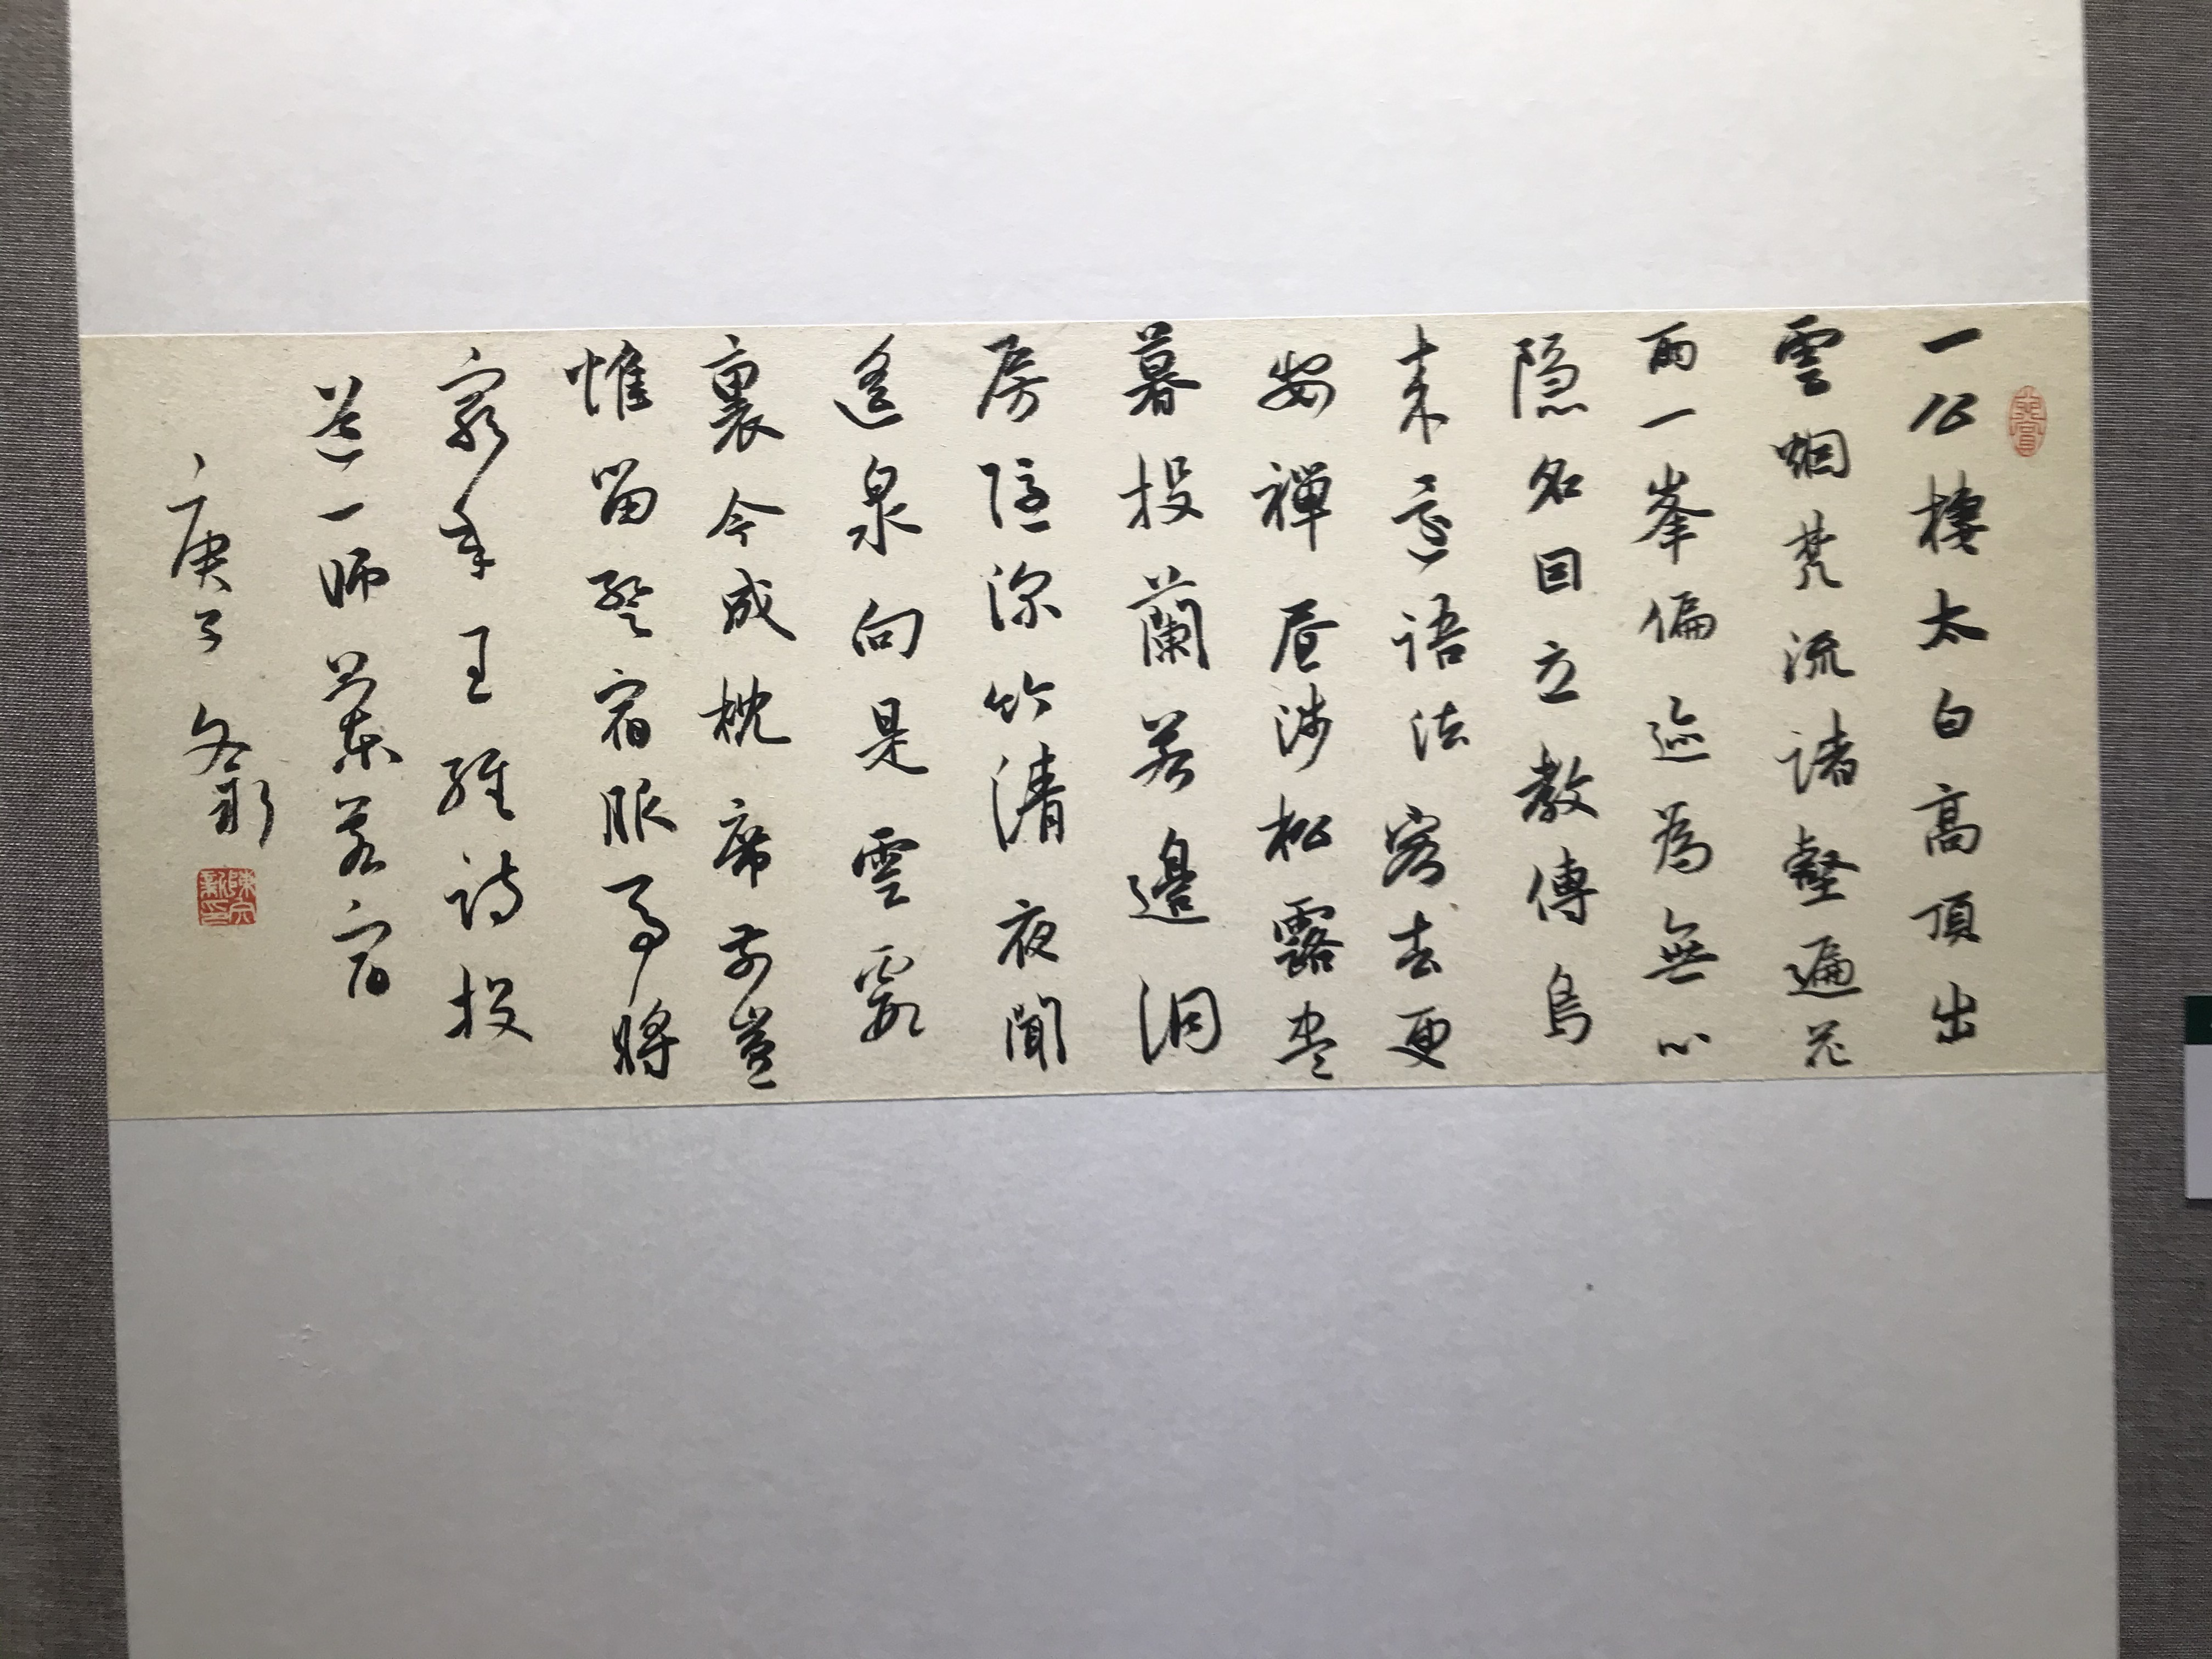 一公棲太白高頂出
雲烟梵流諸壑遍花
雨一峯偏迹為無心
隐名因立教傳鳥
来還語法客去更
安禪昼涉松露盡
暮投蘭若邊洞
房隱深竹清夜聞
遙泉向是雲霞
裏今成枕席前豈
惟留暫宿服事將
窮年王維詩投
道一師蘭若宿
庚子